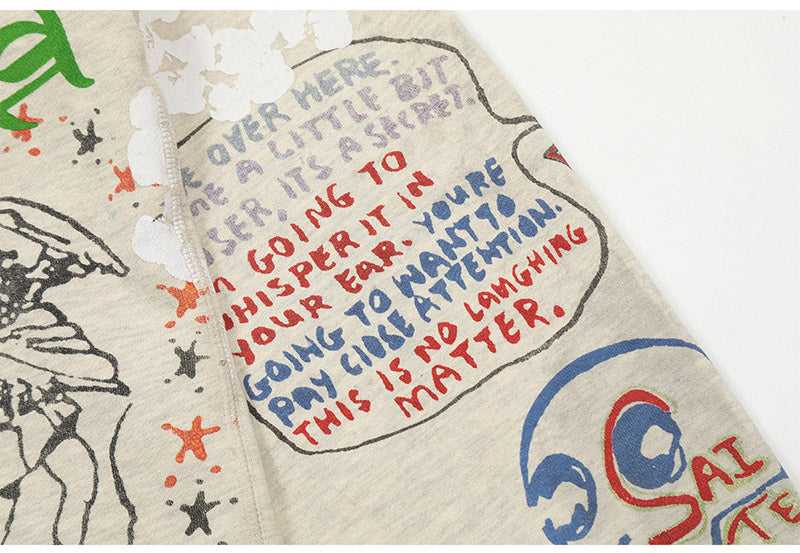 OVER HERE.
A LITTLE BIT
, ITS A SECRET.
GOING TO
WHISPER IT IN
YOUR EAR. YOURE
GOING TO WANT TO
PAY CLOSE ATTENTION.
THIS IS NO LAUGHING
MATTER.
SAI
TE